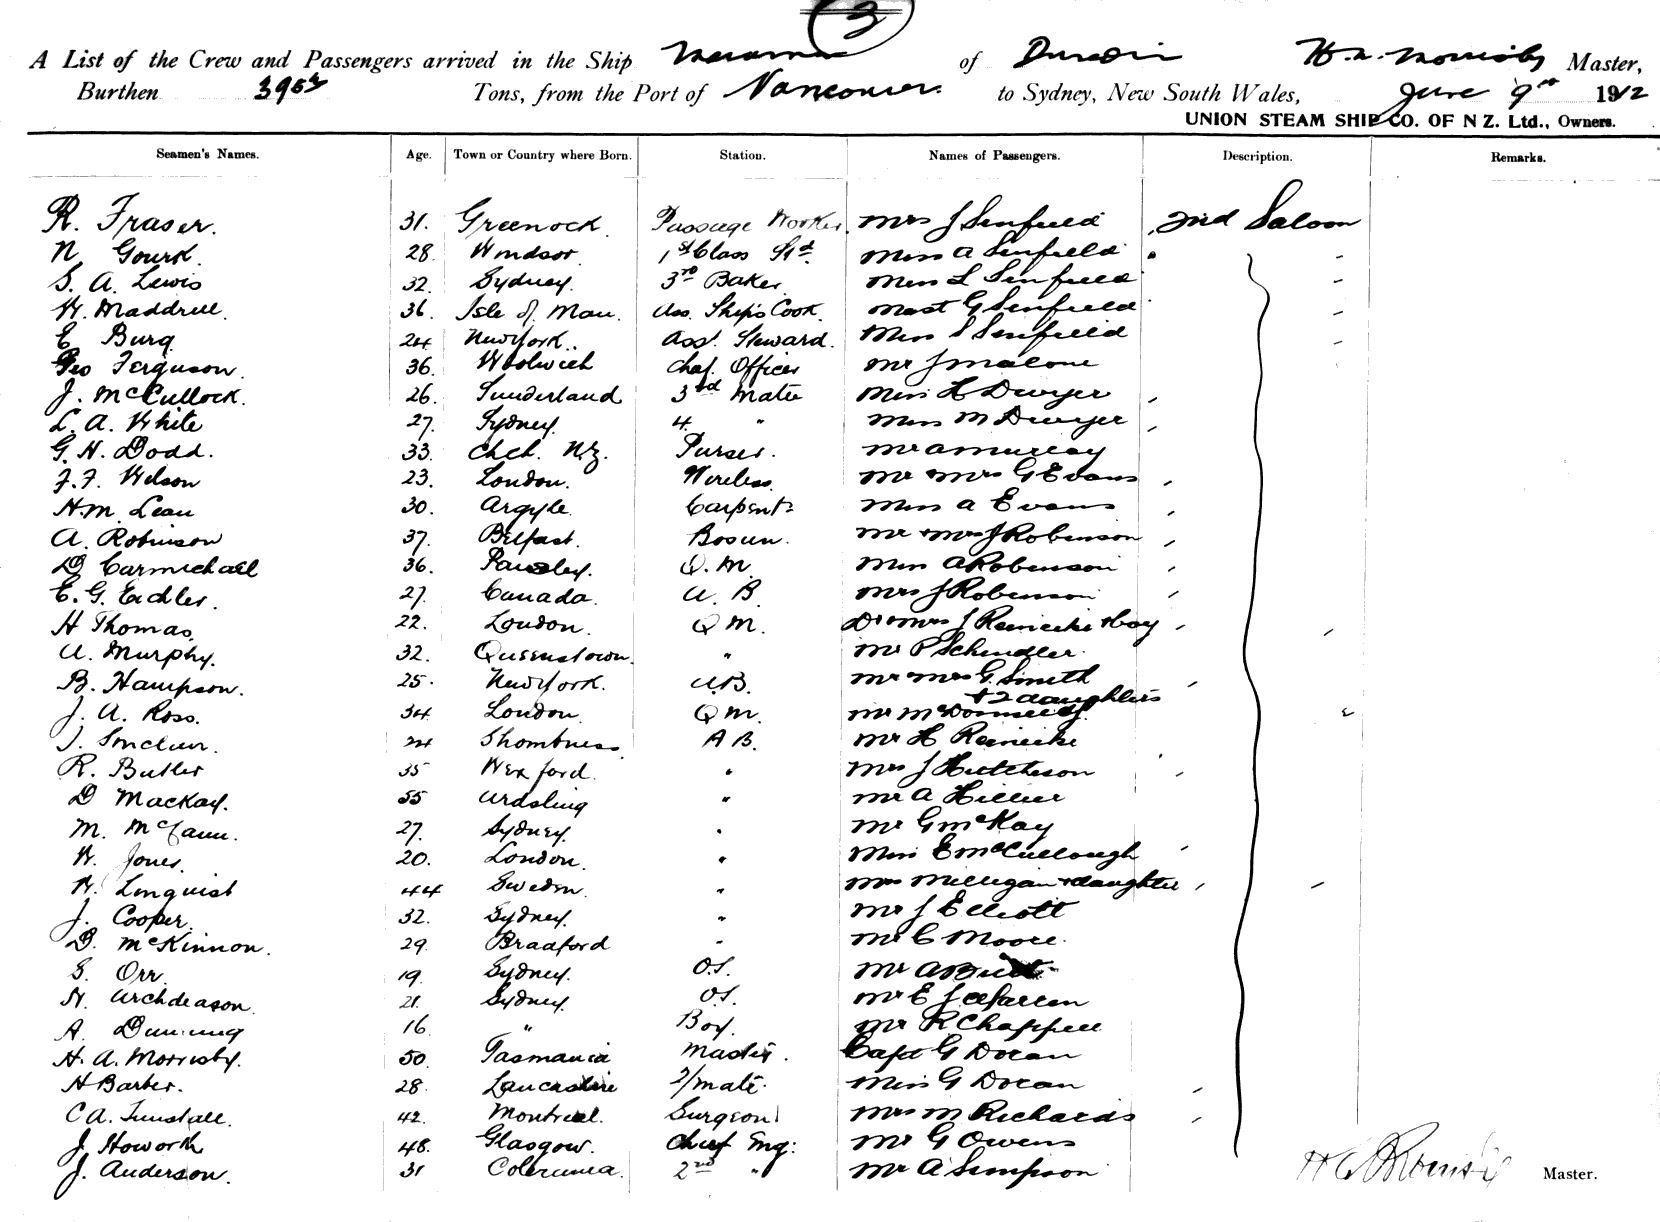 3
A List of the Crew and Passengers arrived in the Ship Marama of Dunedin H. A. Morrisby Master,
Burthen Tons, from the Port of Vancouver to Sydney, New South Wales, June 9th 1912
UNION STEAM SHIP CO. OF N Z. Ltd., Owners.
Seamen's Names. Age. Town or Country where Born. Station. Names of Passengers. Description. Remarks.
R. Fraser. 31. Greenock Passage Worker. Mrs J Senfield 2nd Saloon
N Gourd. 28. Windsor 1st Class St'd. Miss A Senfield "
S. A. Lewis 32. Sydney. 3rd Baker Miss L Senfield
W. Maddrell. 36. Isle of Man. Ass. Ship's Cook. Mast G Senfield
E Burg 24 New York. Ass. Steward. Miss S Senfield
Geo Ferguson. 36. Woolwich Chief Officer Mr J Malone
J. McCullock. 26. Sunderland 3rd Mate Miss H Dwyer
L. A. White 27. Sydney. 4 " Miss M Dwyer
G. H. Dodd. 33. Chch. N.Z. Purser. Mr A Murray
F. F. Wilson 23. London. Wireless. Mr Mrs G Evans
H. M. Lean 30. Argyle. Carpentr Miss A Evans
A. Robinson 37. Belfast. Bosun. Mr + Mrs J Robinson
D Carmichael 36. Paisley. Q. M. Miss A Robinson
E. G. Eichler. 27. Canada. A. B. Mrs J Robinson
H Thomas. 22. London. Q M. Dr + Mrs J Reinecke + boy
A. Murphy. 32. Queenstown. " Mr P Schindler
B. Hampson. 25. New York. A.B. Mr Mrs G. Smith
+ 2 daughters
J. A. Ross. 34. London Q M. Mr
J. Sinclair. 24 A B. Mr H Reinecke
R. Butler 35 Wexford. " Mrs J Hutcheson
D Mackay. 55 " Mr A Hillier
M. McCann. 27. Sydney. " Mr G McKay
W. Jones. 20. London. " Miss E McCullough
W. Linquist 44 Sweden. " Mrs Milligan + daughter
J. Cooper. 32. Sydney. " Mr J Elliott
D. McKinnon. 29. Bradford " Mr C Moore.
S. Orr. 19. Sydney. O.S. Mr A
H. Archdeason. 21. Sydney. O.S. Mr E J
A. Dunning 16 " Boy. Mr R Chappell
H. A. Morrisby. 50. Tasmania Master. Capt G Doran
H Barber. 28. Lancashire 2/mate. Miss G Doran
C A. Tunstall. 42. Montreal. Surgeon Mrs M Richards
J. Howorth 48. Glasgow. Chief Eng: Mr G Owens
J. Anderson. 31 2nd " Mr A Simpson
H A Morrisby Master.